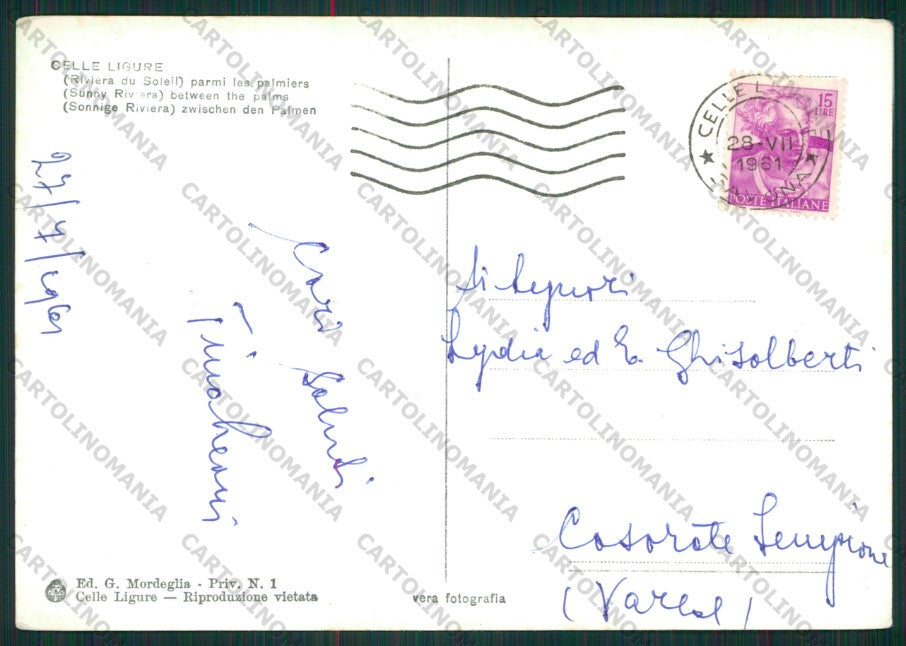 CELLE LIGURE
(Riviera du Soleil) parmi les palmiers
(Sunny Riviera) between the palms
(Sonnige Riviera) zwischen den Palmen
27/7/1961
Cari Saluti
CELLE L
28-VII
1961
SAVONA
15
LIRE
POSTE ITALIANE
Lydia ed E. Ghisolberti
Casorate Sempione
(Varese)
Ed. G. Mordeglia - Priv. N. 1
Celle Ligure — Riproduzione vietata
vera fotografia
CARTOLINOMANIA